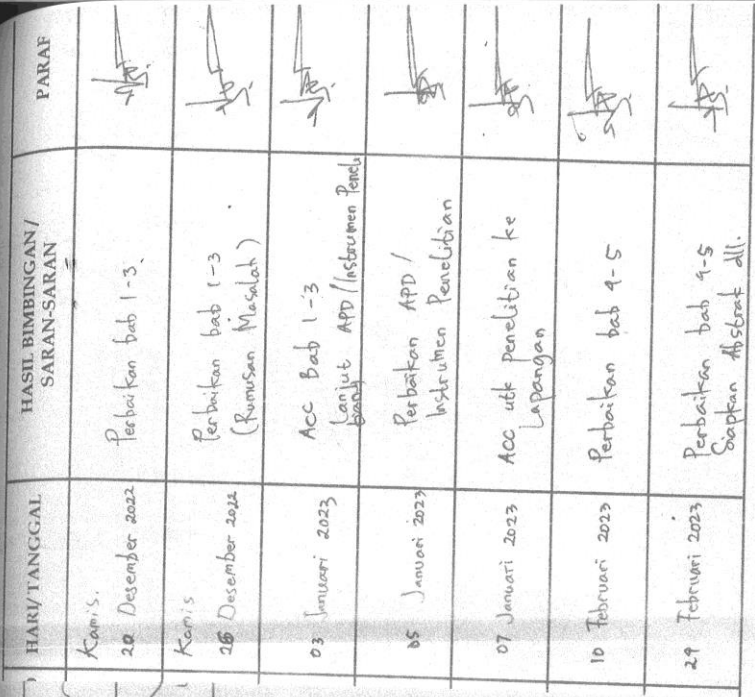 HARI/TANGGAL
HASIL BIMBINGAN /
SARAN-SARAN
PARAF
Kamis.
20 Desember 2022
Perbaikan bab 1-3.
Kamis
26 Desember 2022
Perbaikan bab 1-3
(Rumusan Masalah)
03 Januari 2023
Acc Bab 1-3
Lanjut APD/(Instrumen Peneli
05 Januari 2023
Perbaikan APD/
Instrumen Penelitian
07 Januari 2023
ACC utk penelitian ke
Lapangan
10 Februari 2023
Perbaikan bab 4-5
Februari 2023
Perbaikan bab 4-5
Siapkan Abstrak dll.